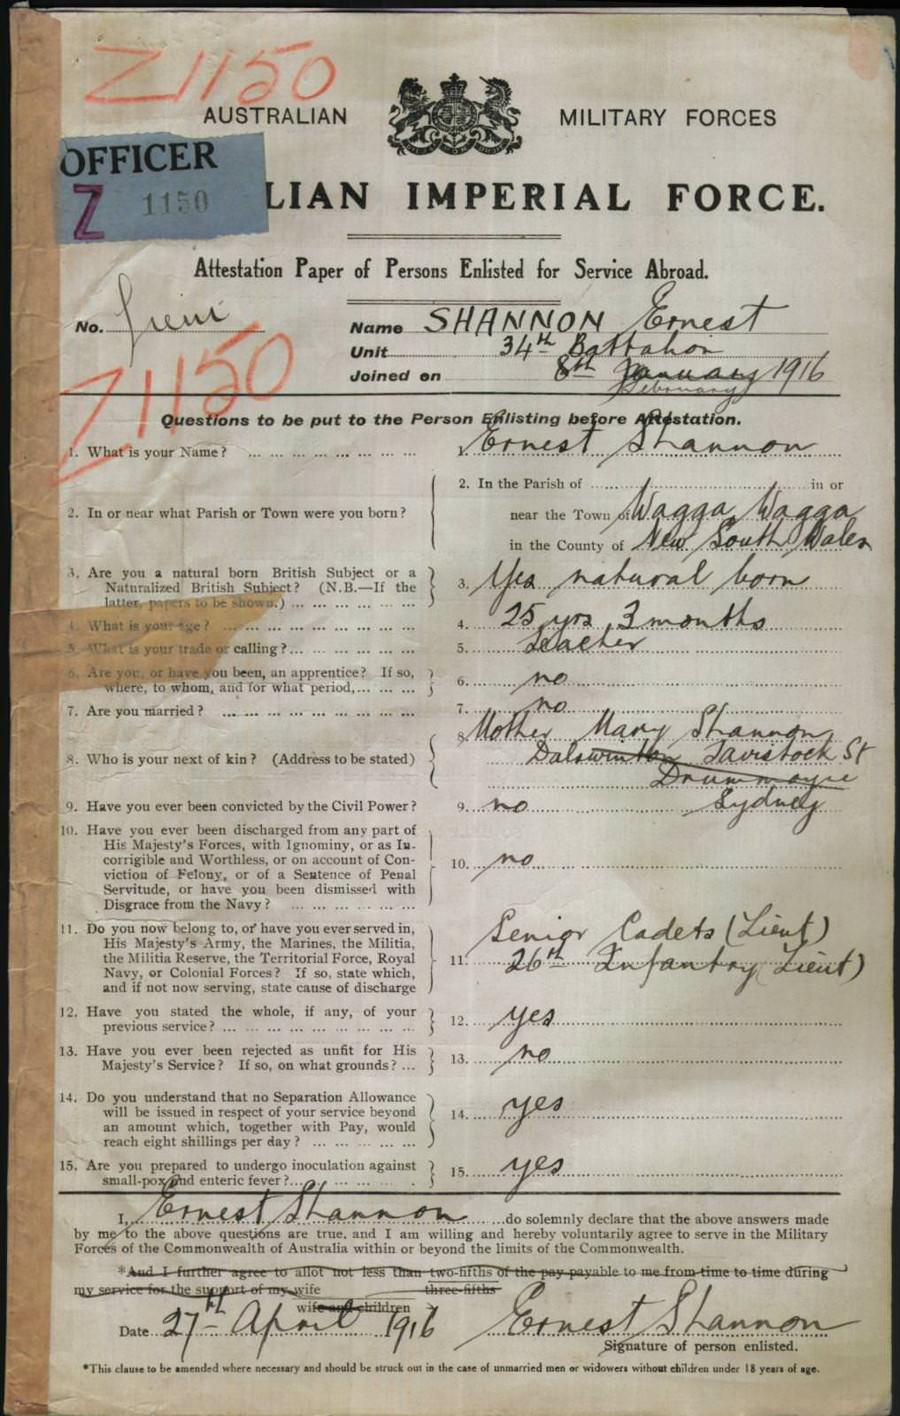 Z1150
AUSTRALIAN MILITARY FORCES
OFFICER
Z 1150
LIAN IMPERIAL FORCE.
Attestation Paper of Persons Enlisted for Service Abroad.
No. Lieut Name SHANNON Ernest
Unit 34th Battalion
Joined on 8th January 1916
February
Z1150
Questions to be put to the Person Enlisting before Attestation.
1. What is your Name? ... ... ... ... ... ... 1. Ernest Shannon
2. In or near what Parish or Town were you born? 2. In the Parish of ... in or
near the Town of Wagga Wagga
in the County of New South Wales
3. Are you a natural born British Subject or a
Naturalized British Subject? (N.B.—If the
latter, papers to be shown.) ... ... ... ... 3. Yes natural born
4. What is your age? ... ... ... ... ... ... 4. 25 yrs 3 months
5. What is your trade or calling? ... ... ... ... 5. Teacher
6. Are you, or have you been, an apprentice? If so,
where, to whom, and for what period, ... ... ... 6. no
7. Are you married? ... ... ... ... ... ... 7. no
8. Who is your next of kin? (Address to be stated) 8. Mother Mary Shannon
Dalswinton Tavistock St
Drummoyne
Sydney
9. Have you ever been convicted by the Civil Power? 9. no
10. Have you ever been discharged from any part of
His Majesty's Forces, with Ignominy, or as In-
corrigible and Worthless, or on account of Con-
viction of Felony, or of a Sentence of Penal
Servitude, or have you been dismissed with
Disgrace from the Navy? ... ... ... ... ... 10. no
11. Do you now belong to, or have you ever served in,
His Majesty's Army, the Marines, the Militia,
the Militia Reserve, the Territorial Force, Royal
Navy, or Colonial Forces? If so, state which,
and if not now serving, state cause of discharge
11. Senior Cadets (Lieut)
26th Infantry (Lieut)
12. Have you stated the whole, if any, of your
previous service? ... ... ... ... ... ... 12. yes
13. Have you ever been rejected as unfit for His
Majesty's Service? If so, on what grounds? ... 13. no
14. Do you understand that no Separation Allowance
will be issued in respect of your service beyond
an amount which, together with Pay, would
reach eight shillings per day? ... ... ... ... 14. yes
15. Are you prepared to undergo inoculation against
small-pox and enteric fever? ... ... ... ... 15. yes
I, Ernest Shannon do solemnly declare that the above answers made
by me to the above questions are true, and I am willing and hereby voluntarily agree to serve in the Military
Forces of the Commonwealth of Australia within or beyond the limits of the Commonwealth.
*And I further agree to allot not less than two-fifths of the pay payable to me from time to time during
my service for the support of my wife three-fifths
wife and children
Date 27th April 1916 Ernest Shannon
Signature of person enlisted.
*This clause to be amended where necessary and should be struck out in the case of unmarried men or widowers without children under 18 years of age.